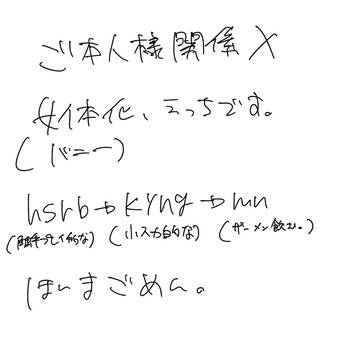 ご本人様関係×
女体化、えっちです。
(バニー)
hsrb→kyng→mn
(触手プレイ的な) (小スカ的な) (ザーメン飲む。)
ほんまごめん。